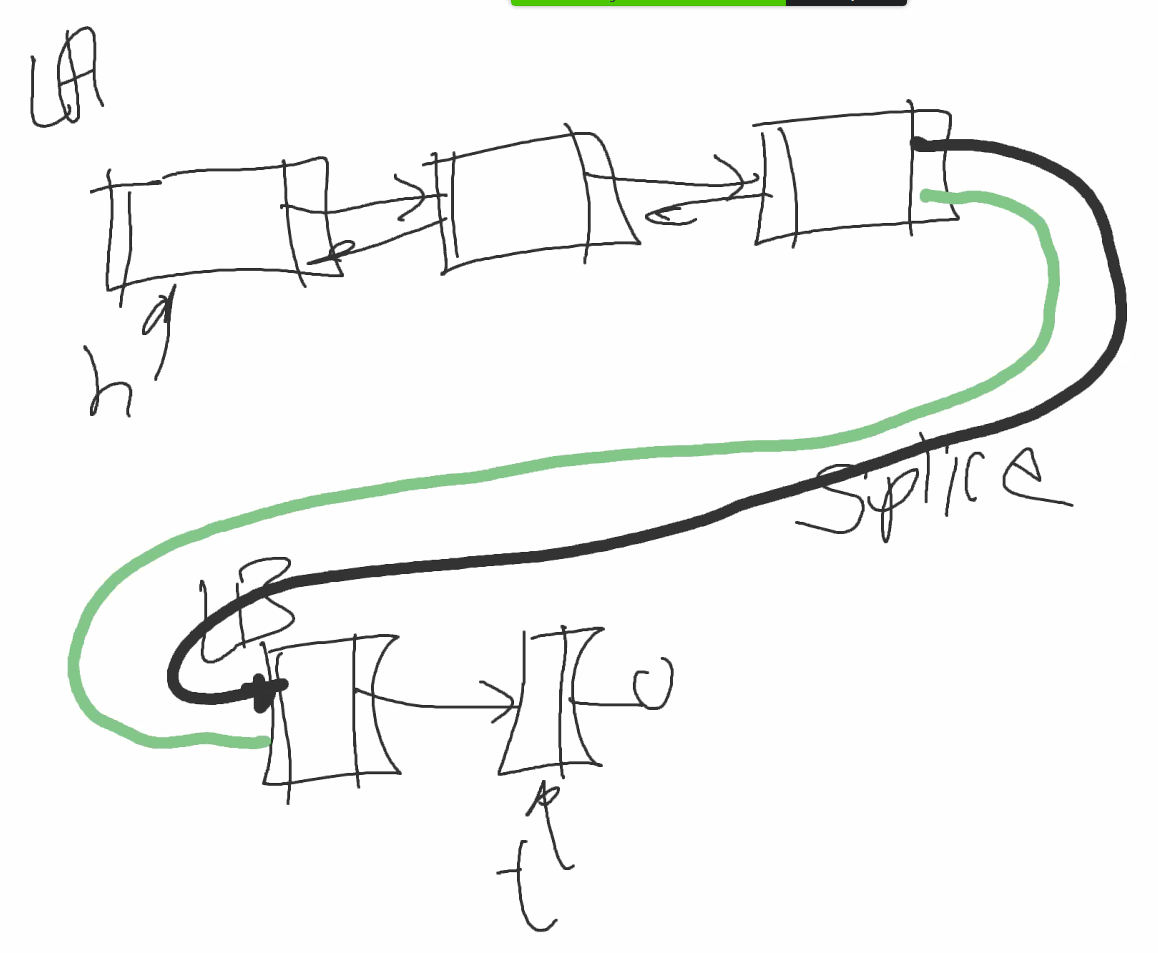 LA
h
Splice
LB
t